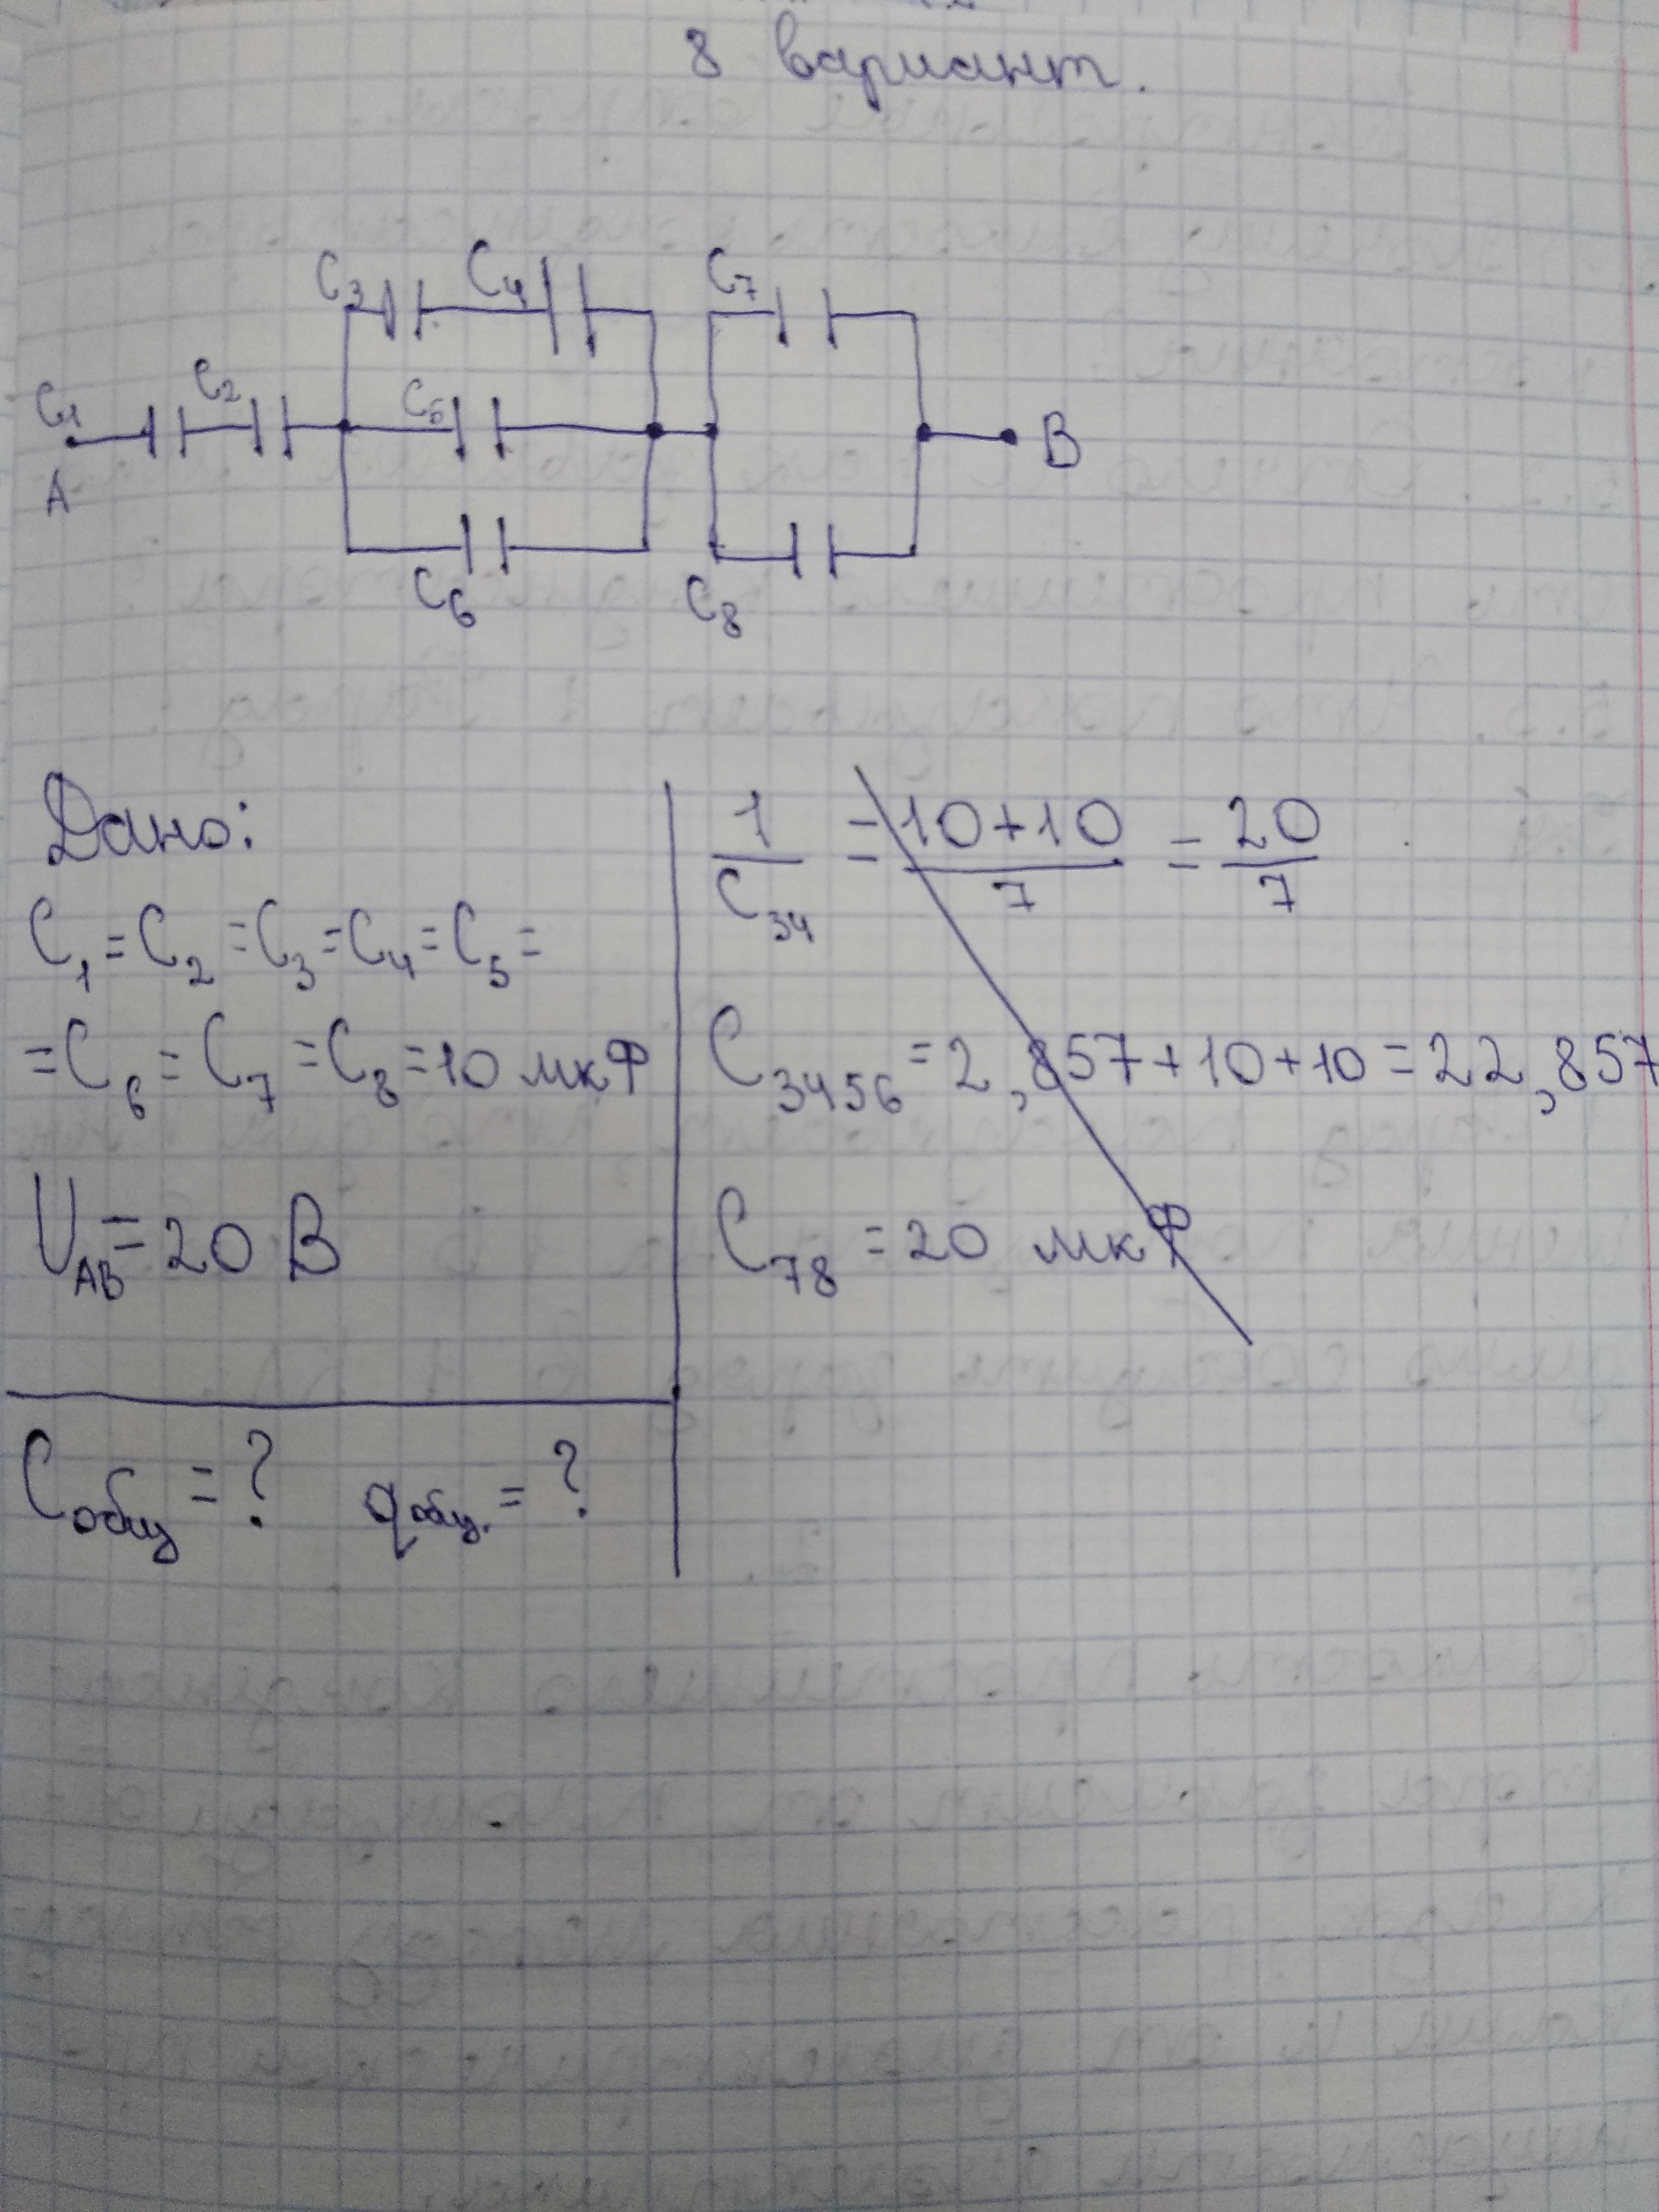 8 вариант.
C3 C4 C7
C1 C2 C5
A B
C6 C8
Дано:
C1 = C2 = C3 = C4 = C5 =
= C6 = C7 = C8 = 10 мкФ
UAB = 20 В
Cобщ = ? qобщ. = ?
1/C34 = 10+10/7 = 20/7
C3456 = 2,857+10+10 = 22,857
C78 = 20 мкФ